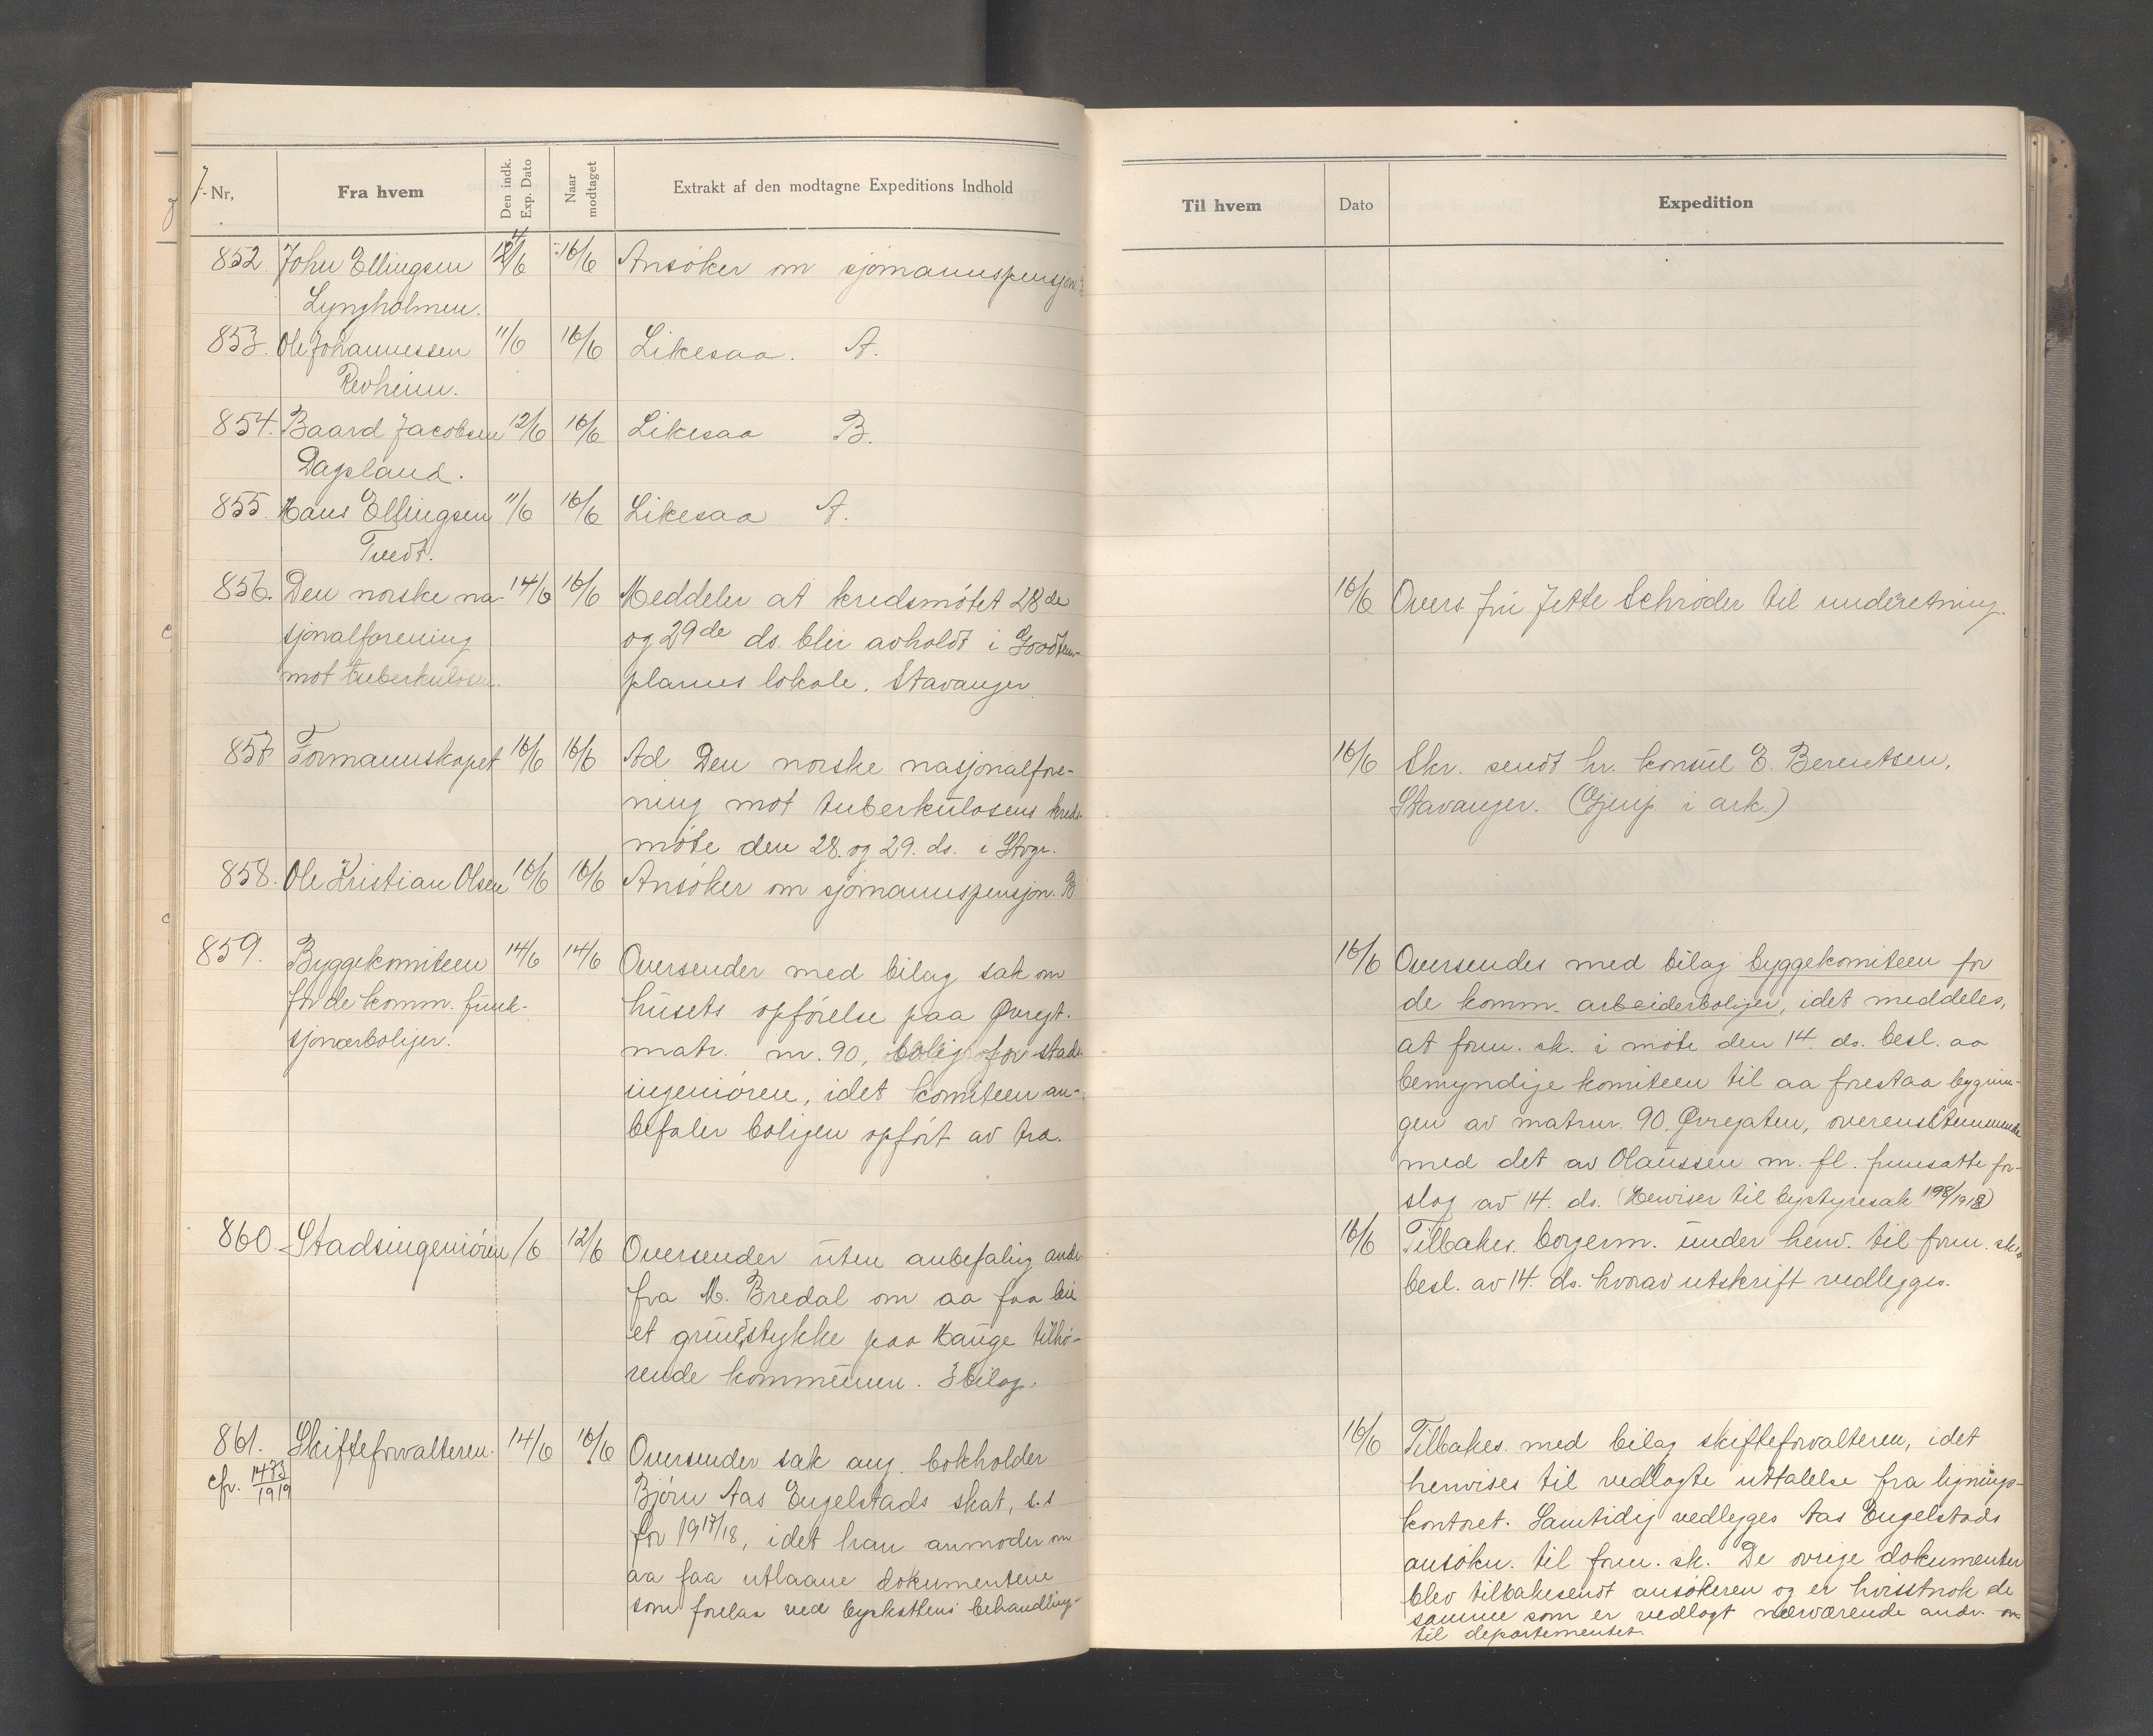 J.-Nr, Fra hvem Den indk. Exp. Dato Naar modtaget Extrakt af den modtagne Expeditions Indhold
852. John Ellingsen 16/6 Ansöker om sjømannspensjon.
Lyngholmen.
853. Ole Johannessen 11/6 16/6 Likesaa. A.
Revheim.
854. Baard Jacobsen 12/6 16/6 Likesaa B.
Dagsland.
855. Hans Ellingsen 11/6 16/6 Likesaa A.
Tvedt.
856. Den norske na- 14/6 16/6 Meddeler at kredsmötet 28de
sjonalforening og 29de ds. blir avholdt i Goodtem-
mot tuberkulosen. plarnes lokale, Stavanger.
857 Formannskapet 16/6 16/6 Ad Den norske nasjonalfore-
ning mot tuberkulosens kreds-
möte den 28. og 29. ds. i Stvgr.
858. Ole Kristian Olsen 16/6 16/6 Ansöker om sjömannspensjon. B
859. Byggekomiteen 14/6 14/6 Oversender med bilag sak om
for de komm. funk- husets opförelse paa Øvregt.
sjonærboliger. matr. nr. 90, bolig for stads-
ingeniören, idet komiteen an-
befaler boligen opfört av tra.
860. Stadsingeniören /6 12/6 Oversender uten anbefalig andr
fra M. Bredal om aa faa leie
et grundstykke paa Hauge tilhö-
rende kommunen. 3 bilag.
861. Skifteforvalteren. 14/6 16/6 Oversender sak ang. bokholder
cfr. 1473/1919 Björn Aas Engelstads skat, s.s
for 1917/18, idet han anmoder om
aa faa utlaane dokumentene
som forelaa ved byskattens behandling.
Til hvem Dato Expedition
16/6 Overs. fru Jette Schröder til underetning.
16/6 Skr. sendt hr. konsul E. Berentsen,
Stavanger. (Gjenp. i ark.)
16/6 Oversendes med bilag byggekomiteen for
de komm. arbeiderboliger, idet meddeles,
at form. sk. i möte den 14. ds. besl. aa
bemyndige komiteen til aa forestaa bygnin-
gen av matrnr. 90, Øvregaten, overensstemmende
med det av Olaussen m. fl. fremsatte for-
slag av 14. ds. (Henviser til bystyresak 198/1918)
16/6 Tilbakes. borgerm. under henv. til form. sk.s
besl. av 14. ds. hvorav utskrift vedlegges.
16/6 Tilbakes. med bilag skifteforvalteren, idet
henvises til vedlagte uttalelse fra lignings-
kontoret. Samtidig vedlegges Aas Engelstads
ansökn. til form. sk. De övrige dokumenter
blev tilbakesendt ansökeren og er hvisstnok de
samme som er vedlagt nærværende andr. om
til departementet.